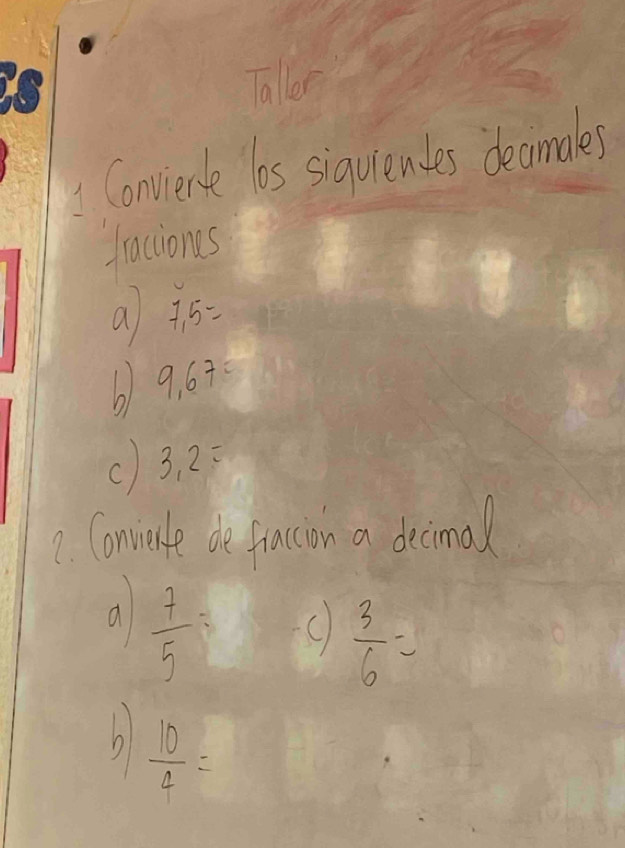 ES
Taller
1. Convierte los siguientes decimales
fracciones
a) 7,5=
b) 9,67=
c) 3,2=
2. Convierte de fracción a decimal.
a) 7/5 = c) 3/6 =
b) 10/4 =